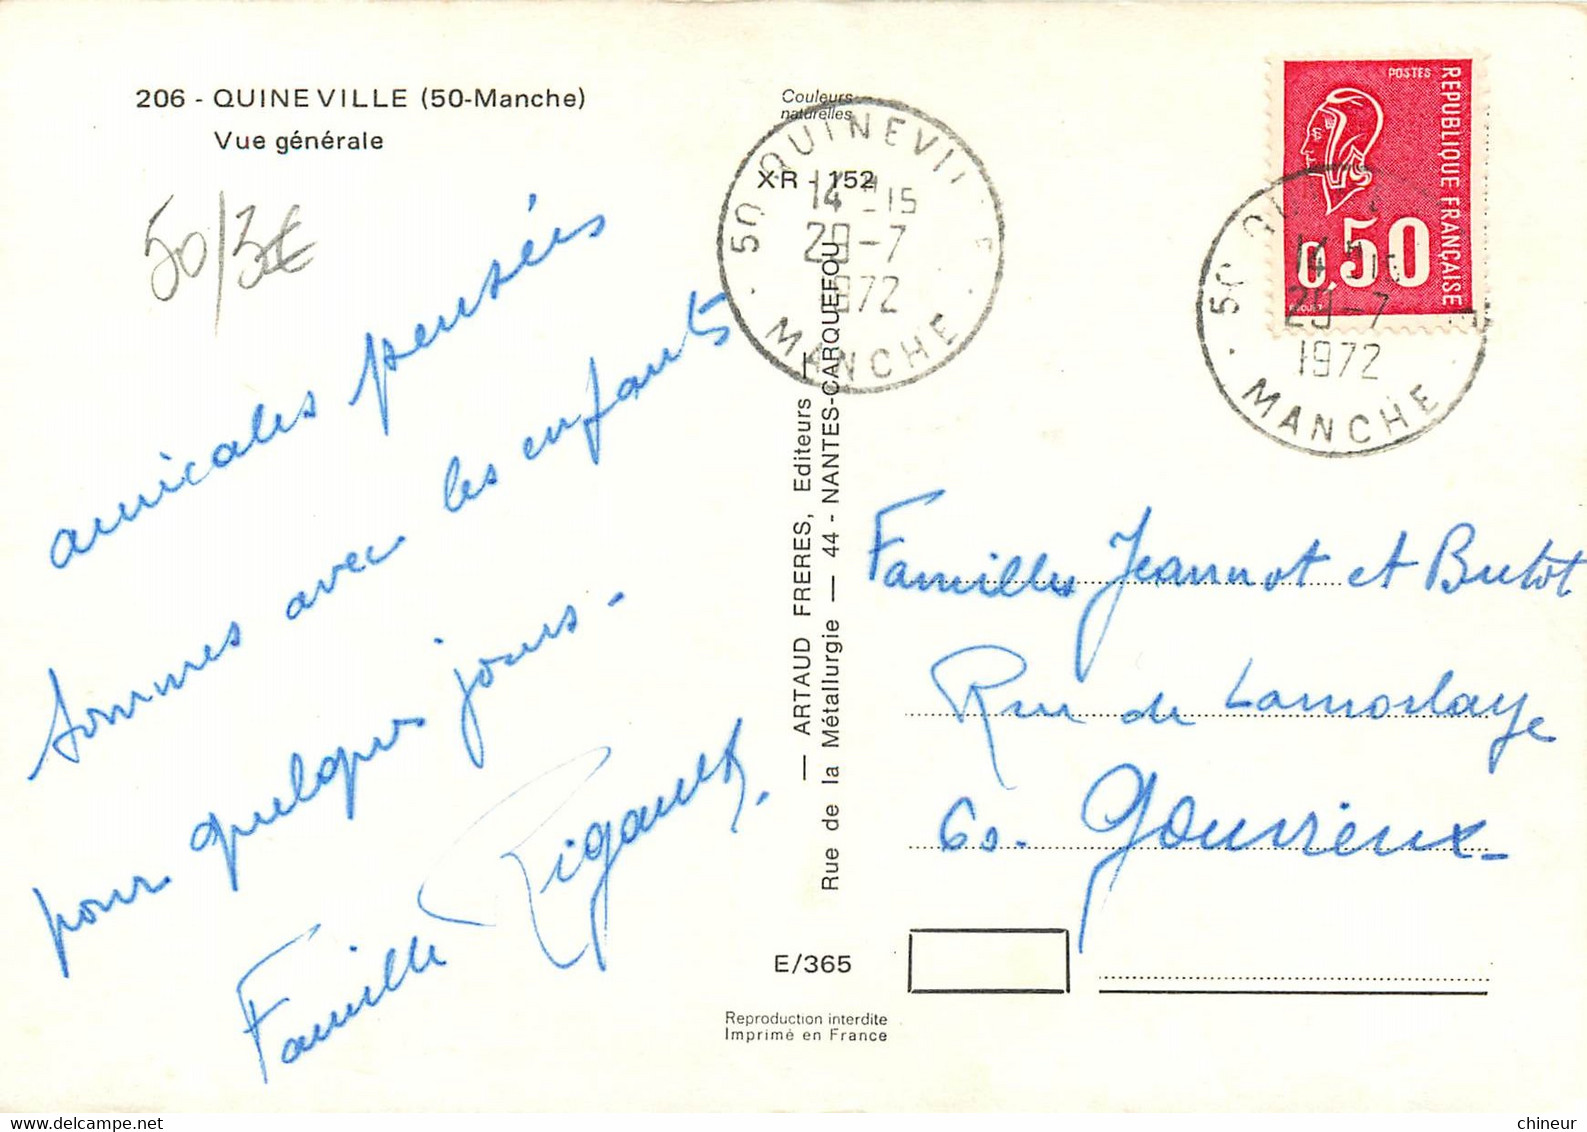 206 - QUINEVILLE (50-Manche)
Vue générale
50/3€
amicales pensées
sommes avec les enfants
pour quelques jours -
Famille Rigault.
Couleurs
naturelles
XR - 152
50 QUINEVILLE
14H15
29-7
1972
MANCHE
— ARTAUD FRERES, Editeurs —
Rue de la Métallurgie — 44 - NANTES-CARQUEFOU
E/365
Reproduction interdite
Imprimé en France
POSTES
REPUBLIQUE FRANÇAISE
0,50
50
14H15
29-7
1972
MANCHE
Familles Jeannot et Butot
Rue de Lamorlaye
60. Gouvieux -
chineur